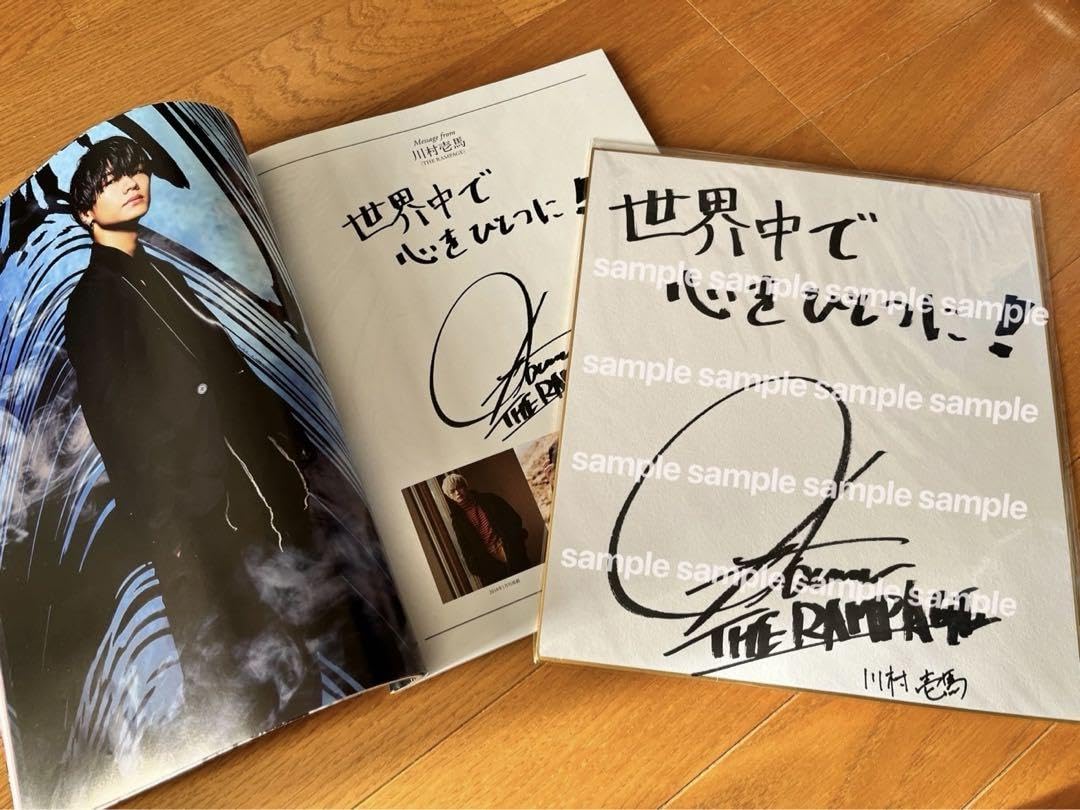 Message from
川村壱馬
(THE RAMPAGE)
世界中で
心をひとつに!
THE RA
世界中で
心をひとつに!
THE RAMPAGE
川村壱馬
sample sample sample sample
sample sample sample sample
sample sample sample sample
sample sample sample sample